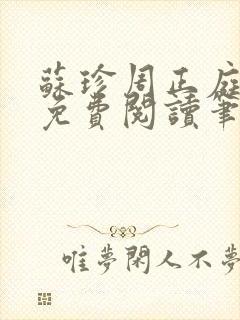 蘇珍周正庭
免費閱讀筆
唯夢閑人不夢